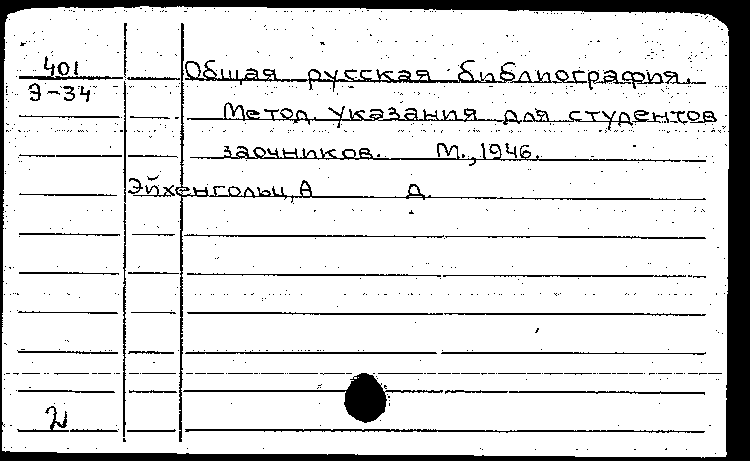 401 Общая русская библиография.
Э-34 Метод. указания для студентов
заочников. М., 1946.
Эйхенгольц, А Д.